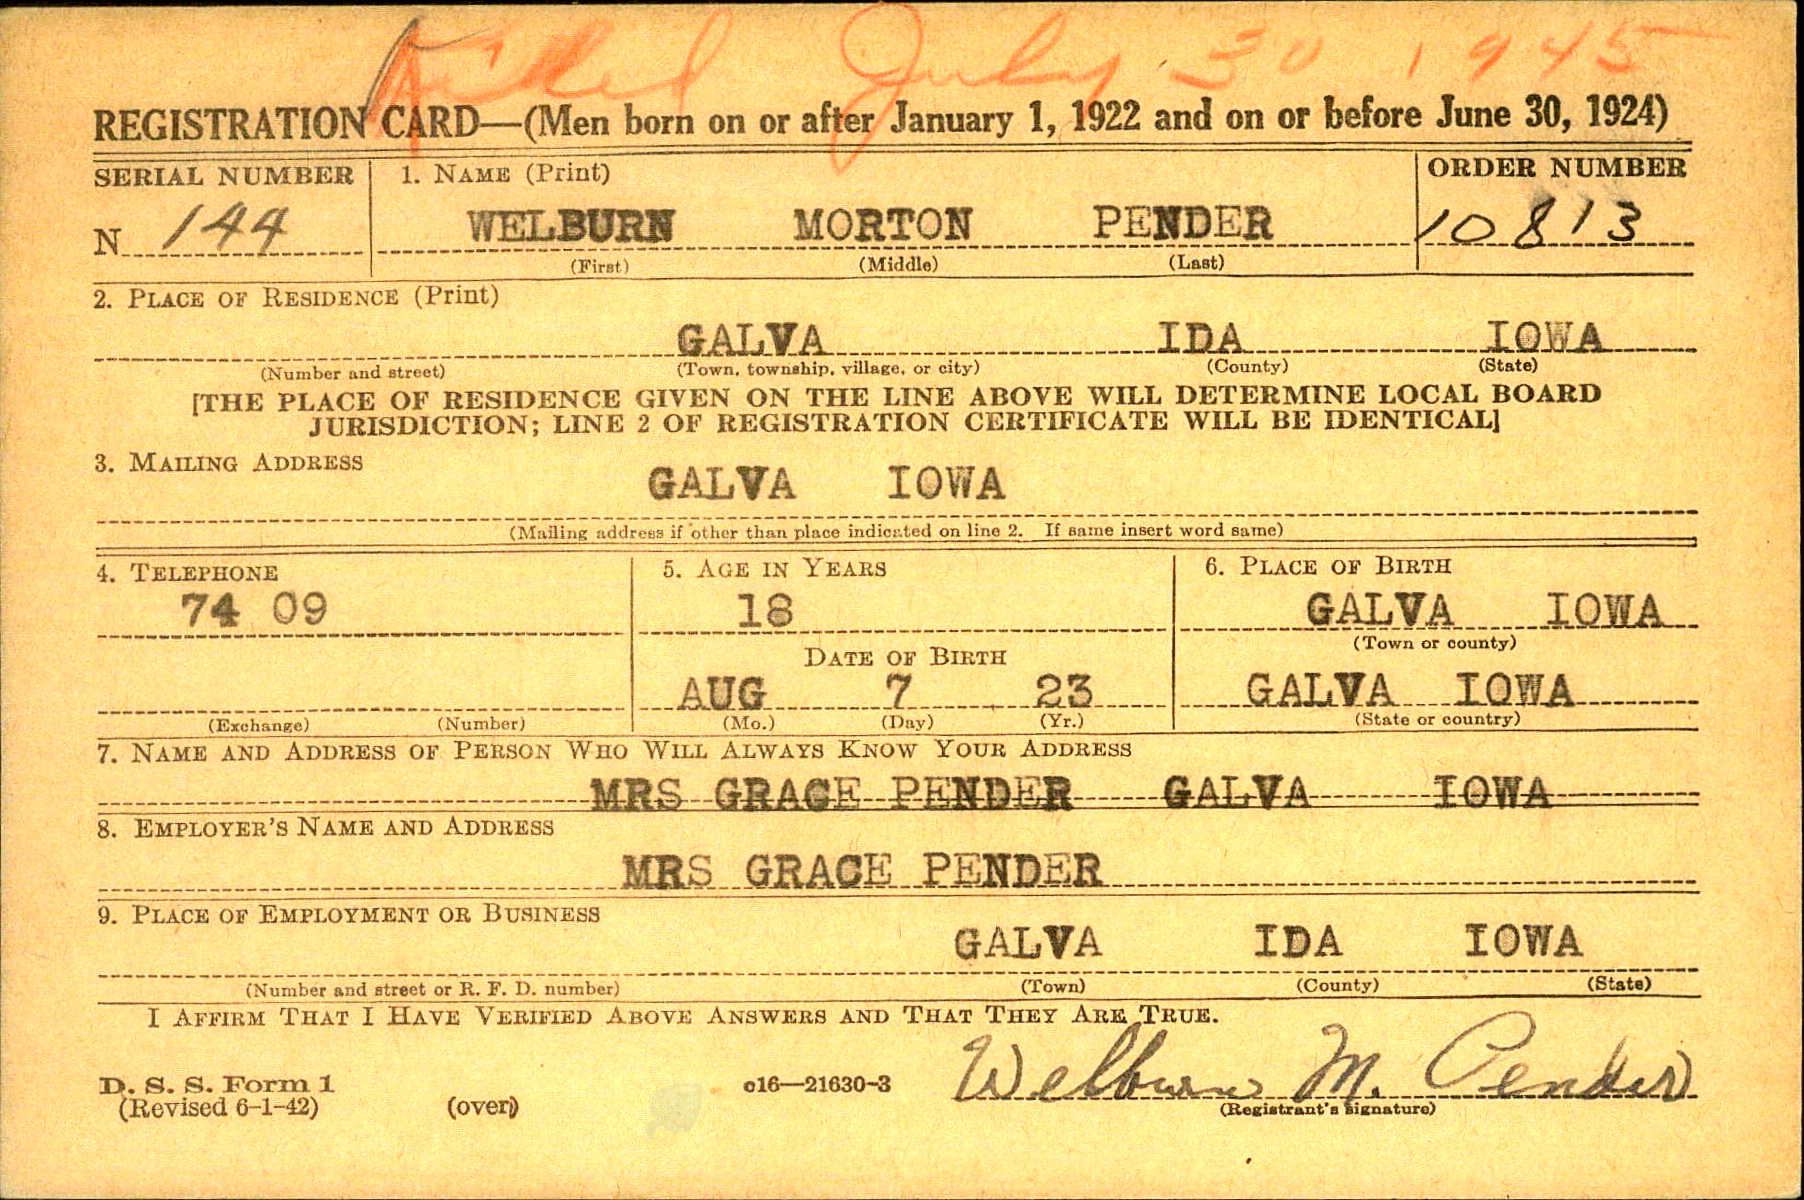 Killed July 30 1945
REGISTRATION CARD—(Men born on or after January 1, 1922 and on or before June 30, 1924)
SERIAL NUMBER 1. NAME (Print) ORDER NUMBER
N 144 WELBURN MORTON PENDER 10813
(First) (Middle) (Last)
2. PLACE OF RESIDENCE (Print)
GALVA IDA IOWA
(Number and street) (Town, township, village, or city) (County) (State)
[THE PLACE OF RESIDENCE GIVEN ON THE LINE ABOVE WILL DETERMINE LOCAL BOARD
JURISDICTION; LINE 2 OF REGISTRATION CERTIFICATE WILL BE IDENTICAL]
3. MAILING ADDRESS
GALVA IOWA
(Mailing address if other than place indicated on line 2. If same insert word same)
4. TELEPHONE 5. AGE IN YEARS 6. PLACE OF BIRTH
74 09 18 GALVA IOWA
(Town or county)
DATE OF BIRTH
AUG 7 23 GALVA IOWA
(Exchange) (Number) (Mo.) (Day) (Yr.) (State or country)
7. NAME AND ADDRESS OF PERSON WHO WILL ALWAYS KNOW YOUR ADDRESS
MRS GRACE PENDER GALVA IOWA
8. EMPLOYER'S NAME AND ADDRESS
MRS GRACE PENDER
9. PLACE OF EMPLOYMENT OR BUSINESS
GALVA IDA IOWA
(Number and street or R. F. D. number) (Town) (County) (State)
I AFFIRM THAT I HAVE VERIFIED ABOVE ANSWERS AND THAT THEY ARE TRUE.
D. S. S. Form 1 c16—21630-3 Welburn M. Pender
(Revised 6-1-42) (over) (Registrant's signature)